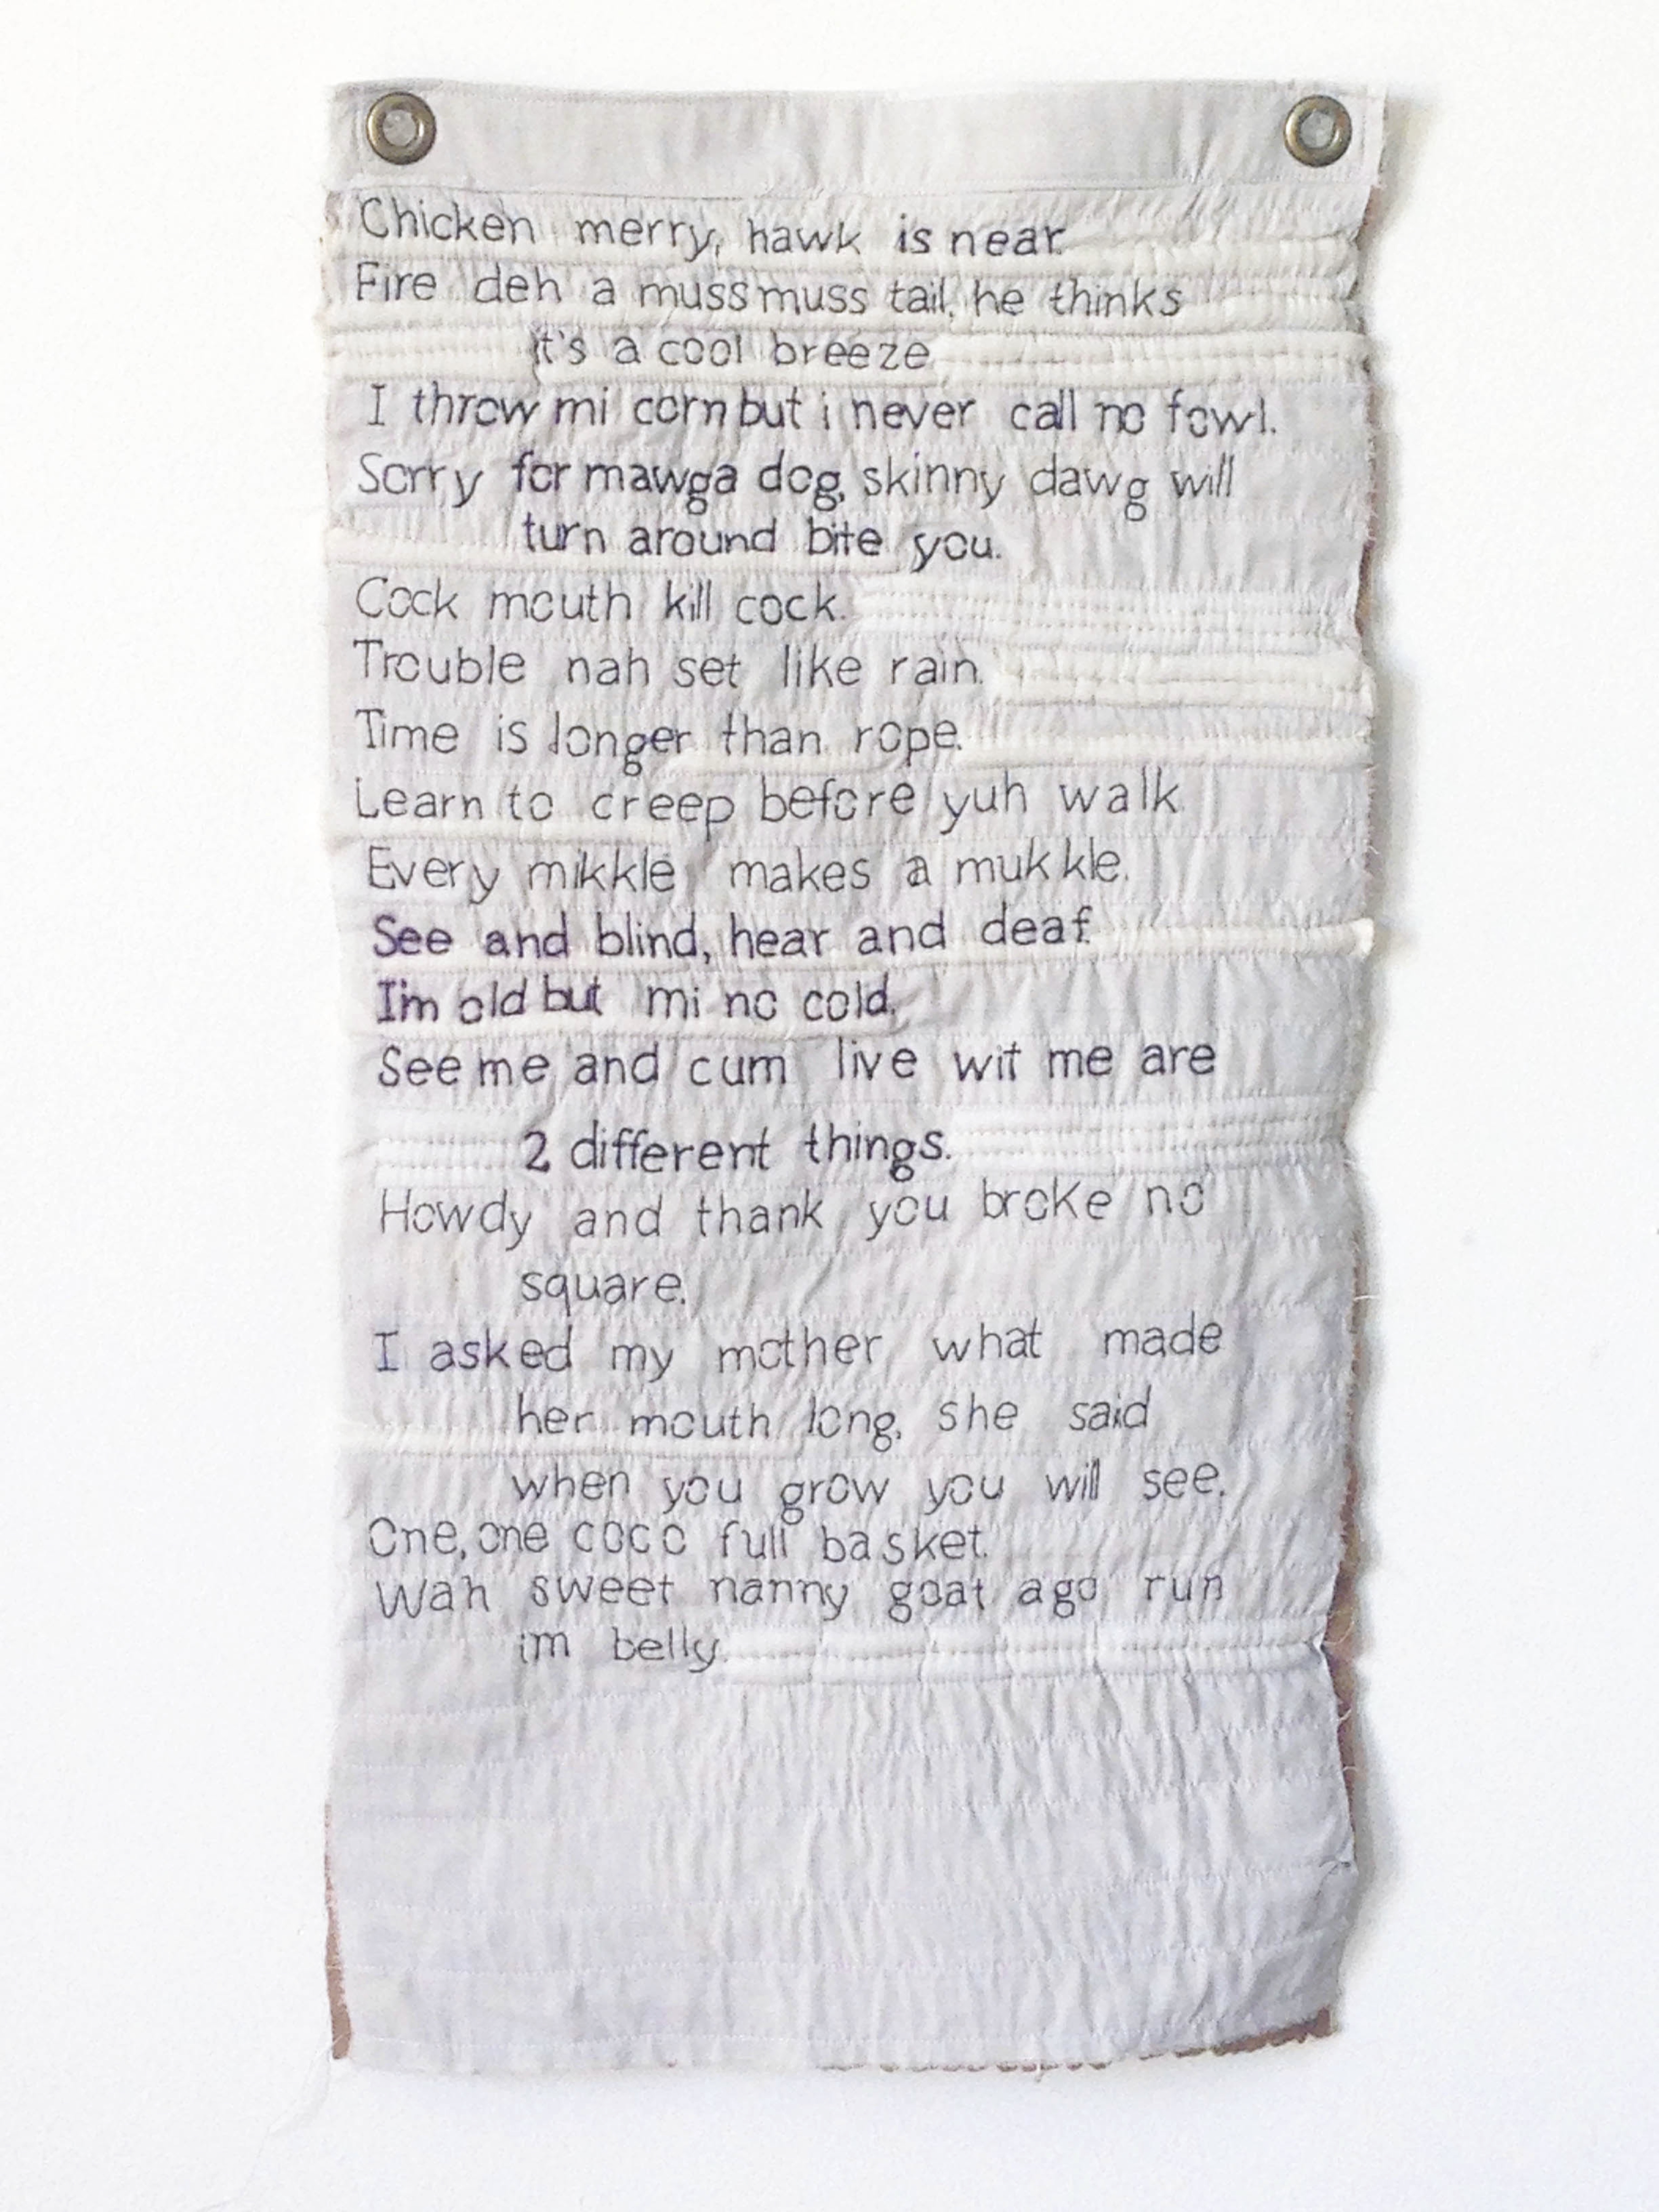 Chicken merry, hawk is near.
Fire deh a mussmuss tail, he thinks
it's a cool breeze.
I throw mi corn but i never call no fowl.
Sorry for mawga dog, skinny dawg will
turn around bite you.
Cock mouth kill cock.
Trouble nah set like rain.
Time is longer than rope.
Learn to creep before yuh walk.
Every mikkle makes a mukkle.
See and blind, hear and deaf.
I'm old but mi no cold.
See me and cum live wit me are
2 different things.
Howdy and thank you broke no
square.
I asked my mother what made
her mouth long, she said
when you grow you will see.
One, one coco full basket.
Wah sweet nanny goat ago run
im belly.